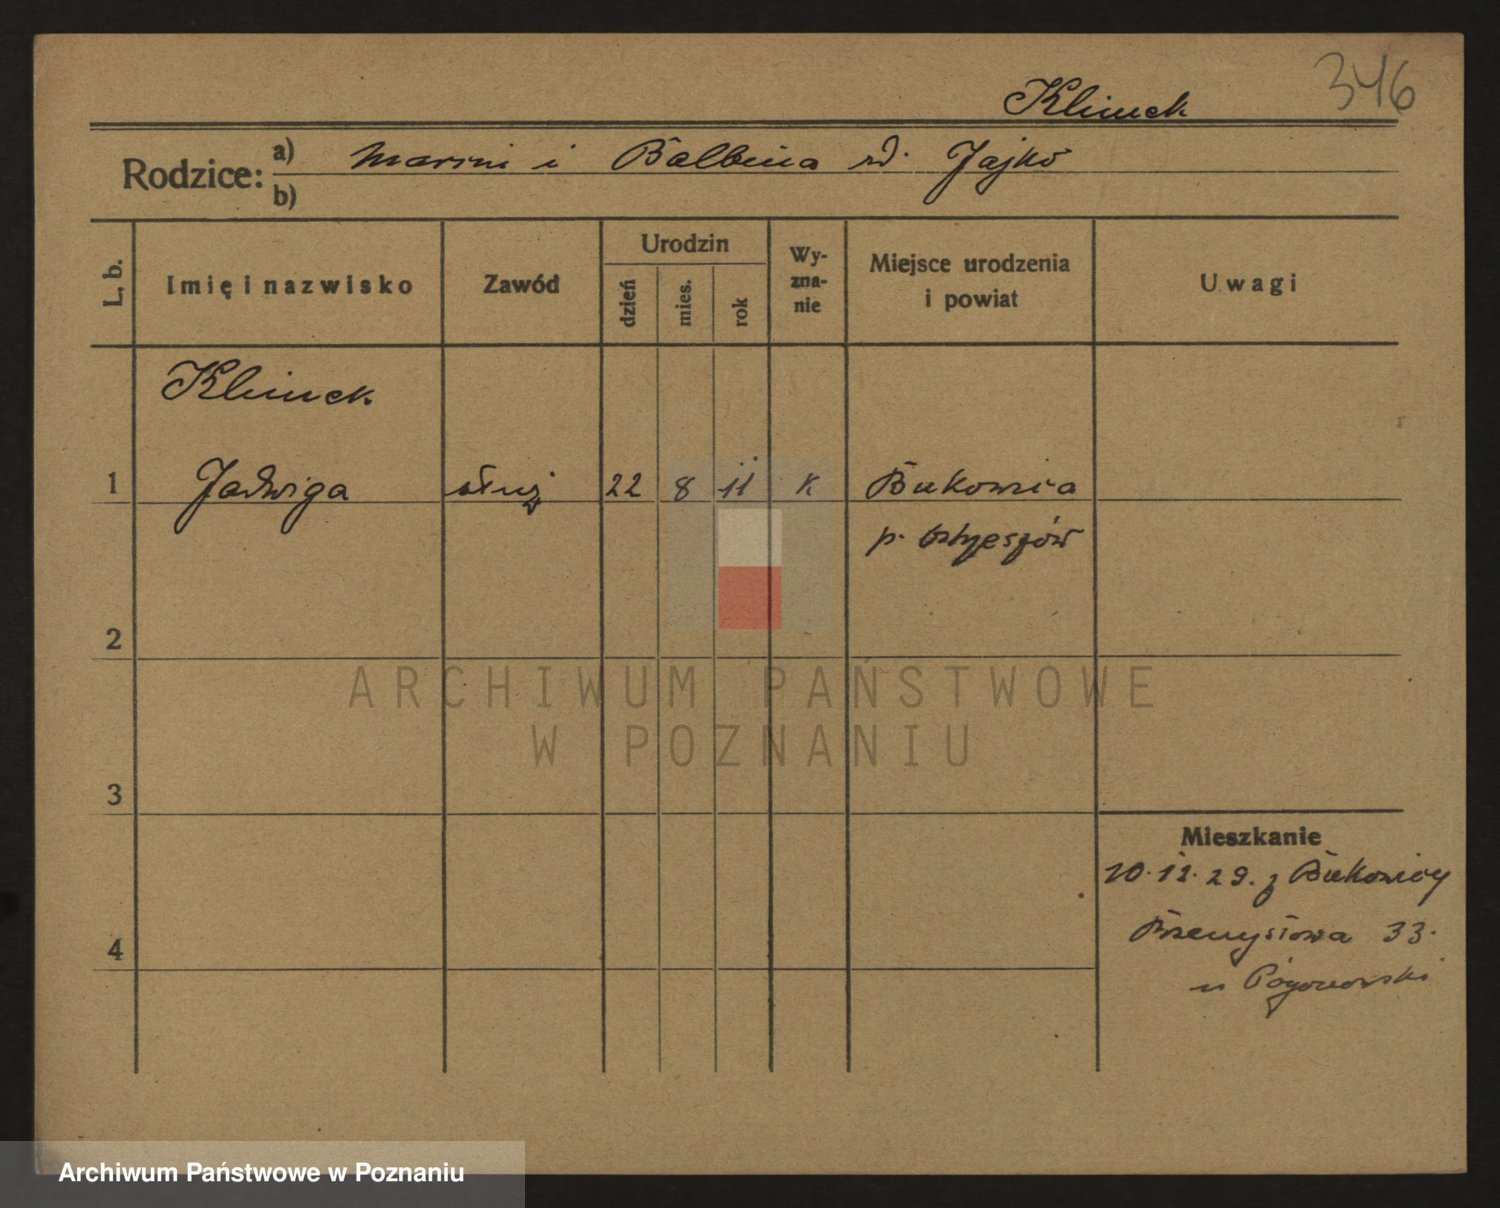 346
Klimek
Rodzice: a) Marcin i Balbina rd. Jajko
b)
L. b. Imię i nazwisko Zawód Urodzin dzień mies. rok Wyznanie Miejsce urodzenia i powiat Uwagi
Klimek
1 Jadwiga służ 22 8 11 K Bukownica
p. Ostrzeszów
2
ARCHIWUM PAŃSTWOWE
W POZNANIU
3
Mieszkanie
10. 12. 29. z Bukownicy
4 Przemysłowa 33.
u Pogorzelski
Archiwum Państwowe w Poznaniu